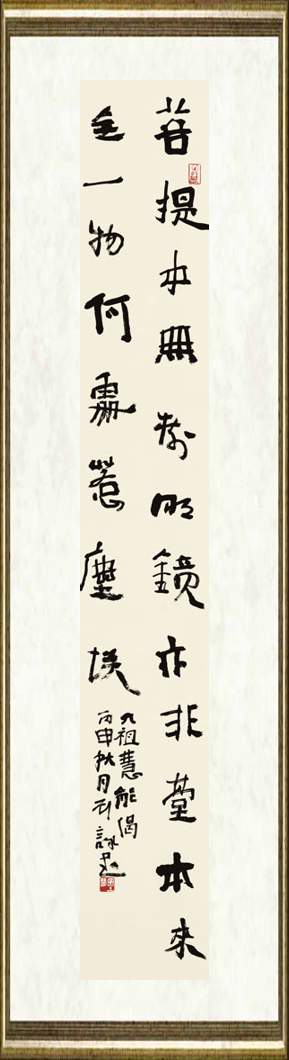 菩提本無樹明鏡亦非臺本來
無一物何處惹塵埃
六祖慧能偈
丙申秋月